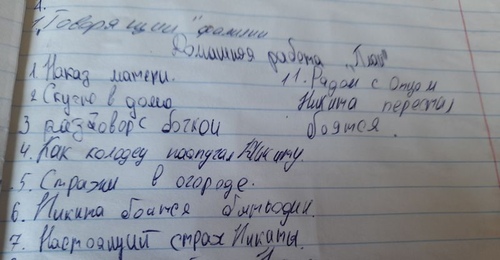 1.
1. Говорящии" фамилии
Домашняя работа "План"
1. Наказ матери.
2 Скучно в доме
3 разговор с бочкой
4. Как колодец напугал Никиту
5. Страхи в огороде.
6. Никита боится быть один.
7. Настоящий страх Никиты.
11. Рядом с отцом
Никита перестал
боятся.